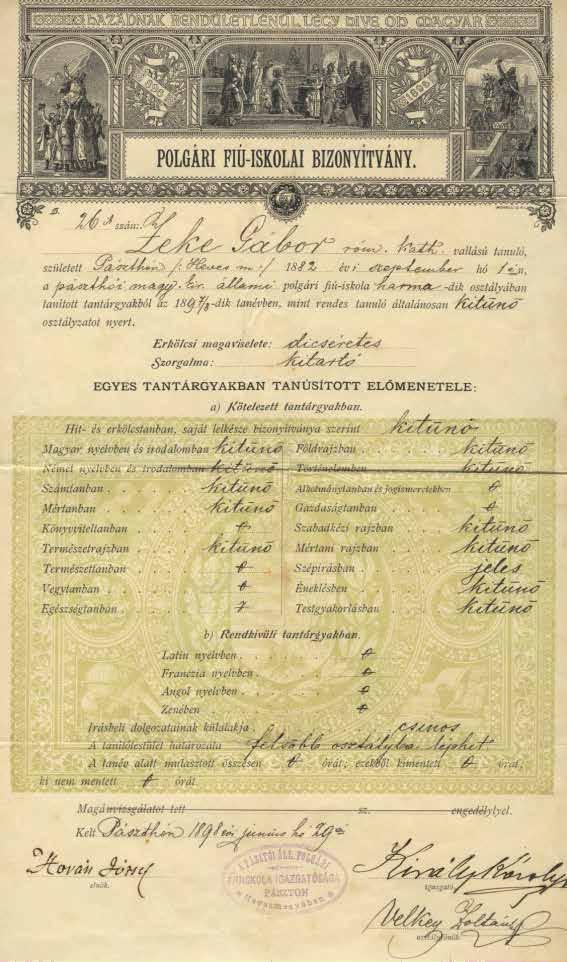 HAZÁDNAK RENDÜLETLENÜL LÉGY HIVE OH MAGYAR
896
1896
POLGÁRI FIÚ-ISKOLAI BIZONYÍTVÁNY.
26 szám:
Zeke Gábor róm. kath. vallású tanuló,
született Pászthón /: Heves m :/ 1882 évi szeptember hó 1én,
a pászthói magy. kir. állami polgári fiú-iskola harma-dik osztályában
tanított tantárgyakból az 1897/8-dik tanévben, mint rendes tanuló általánosan kitünő
osztályzatot nyert.
Erkölcsi magaviselete: dicséretes
Szorgalma: kitartó
EGYES TANTÁRGYAKBAN TANÚSÍTOTT ELŐMENETELE:
a) Kötelezett tantárgyakban.
Hit- és erkölcstanban, saját lelkésze bizonyítványa szerint kitünő
Magyar nyelvben és irodalomban kitünő Földrajzban kitünő
Német nyelvben és irodalomban kitünő Történelemben kitünő
Számtanban kitünő Alkotmánytanban és jogismeretekben
Mértanban kitünő Gazdaságtanban
Könyvviteltanban Szabadkézi rajzban kitünő
Természetrajzban kitünő Mértani rajzban kitünő
Természettanban Szépírásban jeles
Vegytanban Éneklésben kitünő
Egészségtanban Testgyakorlásban kitünő
b) Rendkívüli tantárgyakban.
Latin nyelvben
Franczia nyelvben
Angol nyelvben
Zenében
Irásbeli dolgozatainak külalakja csinos
A tanítótestület határozata felsőbb osztályba léphet
A tanév alatt mulasztott összesen órát; ezekből kimentett órát,
ki nem mentett órát
Magánvizsgálatot tett sz. engedélylyel.
Kelt Pászthón 1898 évi junius hó 29én
Hován József
elnök.
A PÁSZTÓI ÁLL. POLGÁRI
FIUISKOLA IGAZGATÓSÁGA
PÁSZTÓN
Hevesmegyében
Király Károly
igazgató
Velkey Zoltán
osztályfőnök